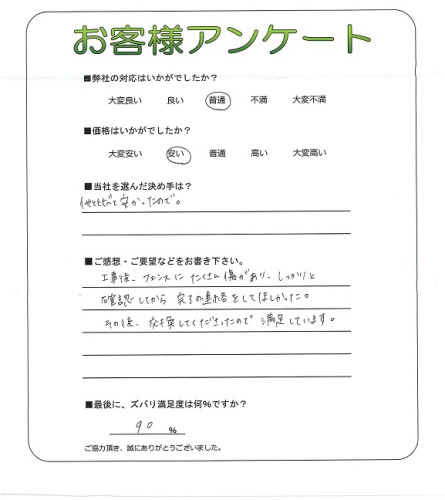 お客様アンケート
■弊社の対応はいかがでしたか？
大変良い 良い 普通 不満 大変不満
■価格はいかがでしたか？
大変安い 安い 普通 高い 大変高い
■当社を選んだ決め手は？
他と比べて安かったので。
■ご感想・ご要望などをお書き下さい。
工事後、フェンスにたくさん傷があり、しっかりと
確認してから完了の連絡をしてほしかった。
その後、交換してくださったので満足しています。
■最後に、ズバリ満足度は何%ですか？
90 %
ご協力頂き、誠にありがとうございました。